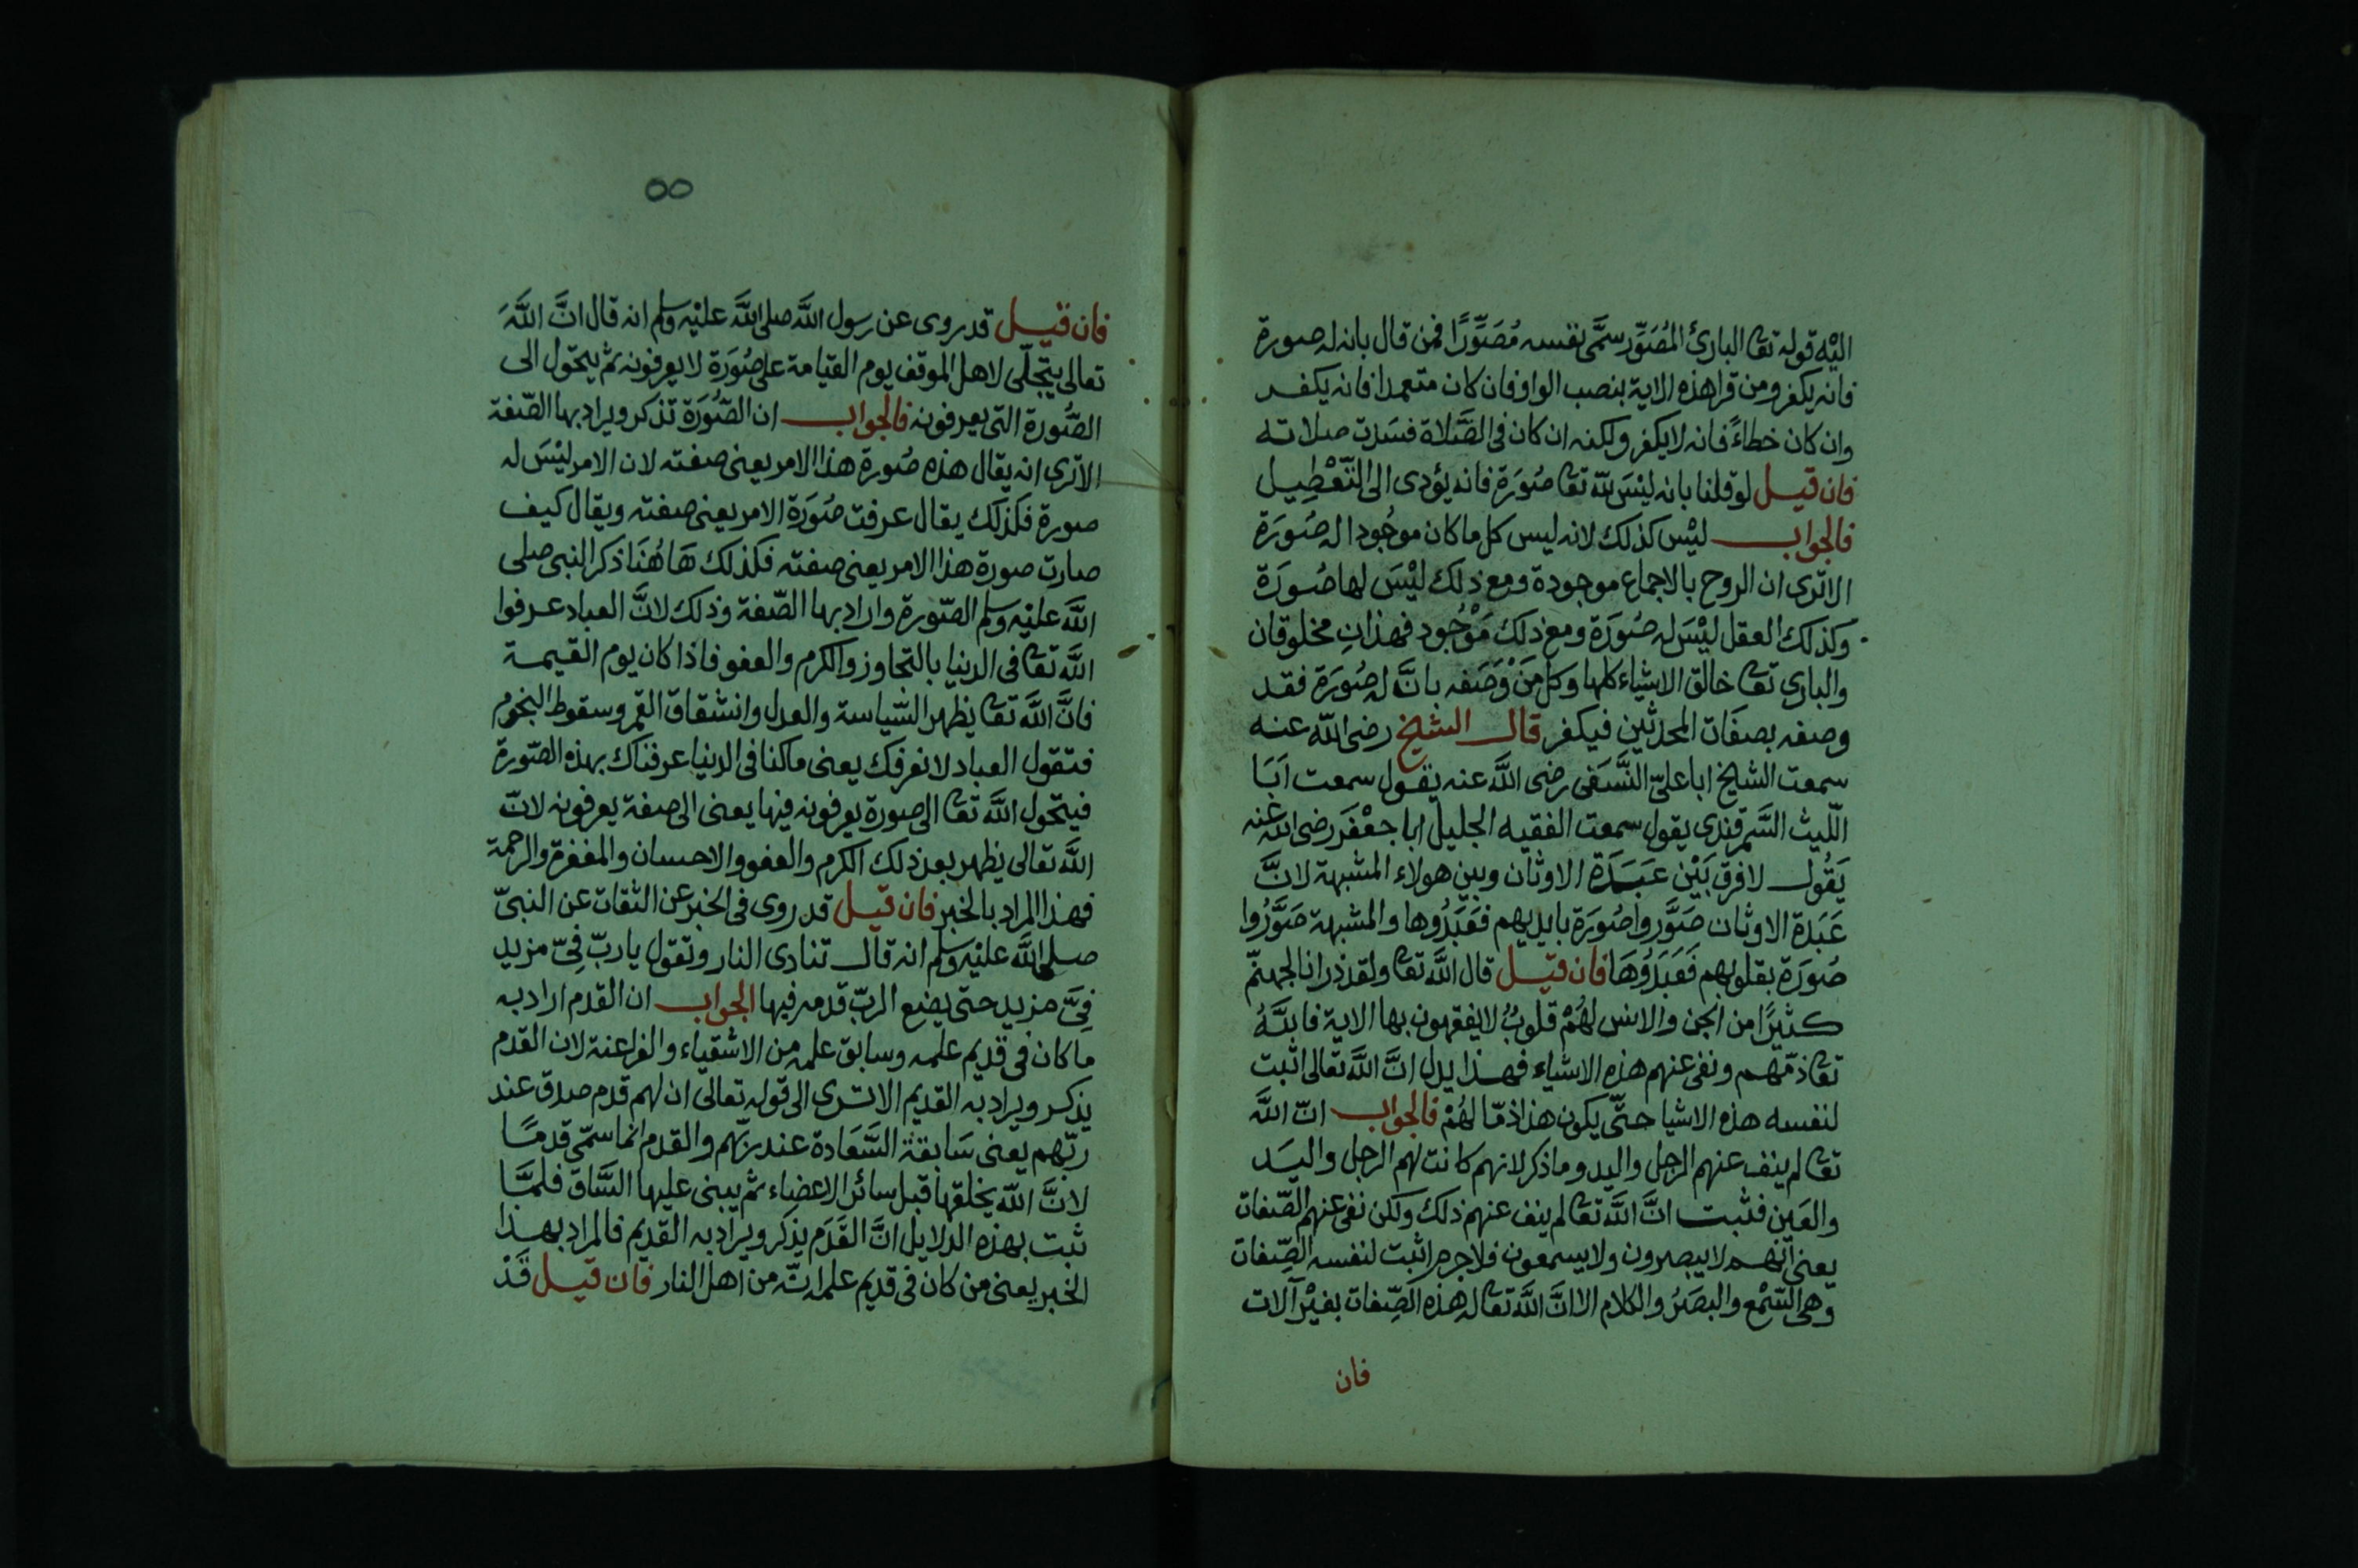 اليْه قوله تعا البارئ المُصَوِّر سمَّى نفسه مُصَوِّرًا فمن قال بانه له صورة
فانه يكفر ومن قرا هذه الاية بنصب الواو فان كان متعمدا فانه يكفر
وان كان خطاءً فانه لا يكفر ولكنه ان كان فى الصَّلاة فسَدت صلاته
فان قيل لو قلنا بانه ليْسَ للّٰه تعا صُوَرَة فانه يؤدى الى التَّعْطِيل
فالجواب ليْس كذلك لانه ليس كل ما كان موجُودا له صُوَرَة
الا ترى ان الروح بالاجماع موجودة ومع ذلك ليْسَ لها صُوَرَة
وكذلك العقل ليْسَ له صُوَرَة ومع ذلك مَوْجُود فهذانِ مخلوقان
والبارى تعا خالق الاشياء كلها وكل مَنْ وَصَفه بانَّ له صُوَرَة فقد
وصفه بصفَات المحدثين فيكفر قال الشيخ رضى اللّٰه عنه
سمعت الشيخ ابا علىّ النَّسَفى رضى اللَّه عنه يقول سمعت اَبَا
اللّيث السَّمرقندى يقول سمعت الفقيه الجليل ابا جعْفَر رضى اللّٰه عنه
يَقُول لا فرق بَيْن عَبَدَة الاوثان وبين هولاء المشبهة لانَّ
عَبَدة الاوثان صَوَّروا صُوَرَة بايديهم فعَبَدُوها والمشبهة صَوَّرُوا
صُوَرَة بقلوبهم فَعَبَدُوُهَا فان قيل قال اللَّه تعا ولقد ذرانا لجهنّم
كثيرًا من الجن والانس لهُمْ قلوبٌ لا يفقهون بها الاية فاللَّهُ
تعا ذمّهم ونفى عنهم هذه الاشياء فهذا يدل انَّ اللَّه تعالى اثبت
لنفسه هذه الاشيا حتّى يكون هذا ذمّا لهُمْ فالجواب انّ اللَّه
تعا لم ينف عنهم الرجل واليد وما ذكر لانهم كانت لهم الرجل واليَد
والعَين فثبت انَّ اللَّه تعا لم ينف عنهم ذلك ولكن نفى عنهم الصّفات
يعنى انّهم لا يبصرون ولا يسمعون فلا جرم اثبت لنفسه الصِّفات
وهى السّمْع والبصَرُ والكلام الا انَّ اللَّه تعا له هذه الصِّفات بغيْر آلات
فان
٥٥
فان قيل قد روى عن رسول اللَّه صلى اللَّه عليْه وسلم انه قال انَّ اللَّهَ
تعالى يتجلّى لاهل الموقف يوم القيامة على صُوَرَة لا يعرفونه ثم يتحول الى
الصُّورة التى يعرفونه فالجواب ان الصُّوَرَة تذكر ويراد بها الصّفة
الا ترى انه يقال هذه صُورة هذا الامر يعنى صفته لان الامر ليْسَ له
صورة فكذلك يقال عرفت صُوَرَة الامر يعنى صفته ويقال كيف
صارت صورة هذا الامر يعنى صفته فكذلك هَاهُنَا ذكر النبى صلى
اللَّه عليْه وسلم الصّورة واراد بها الصّفة وذلك لانَّ العباد عرفوا
اللَّه تعا فى الدنيا بالتجاوز والكرم والعفو فاذا كان يوم القيمة
فانَّ اللَّه تعا يظهر السّياسة والعدل وانشقاق القمر وسقوط النجوم
فتقول العباد لا نعرفك يعنى ما كنا فى الدنيا عرفناك بهذه الصّورة
فيتحول اللَّه تعا الى صورة يعرفونه فيها يعنى الى صفة يعرفونه لانّ
اللَّه تعالى يظهر بعد ذلك الكرم والعفو والاحسان والمغفرة والرحمة
فهذا المراد بالخبر فان قيل قد روى فى الخبر عن الثقات عن النبىّ
صلى اللَّه عليْه وسلم انه قال تنادى النار وتقول يا ربّ فِىّ مزيد
فِىَّ مزيد حتى يضع الربّ قدمه فيها الجواب ان القدم اراد به
ما كان فى قديم علمه وسابق علمه من الاشقياء والفراعنة لان القدم
يذكر ويراد به القديم الا ترى الى قوله تعالى ان لهم قدم صدق عند
ربّهم يعنى سَابقة السَّعَادة عند ربّهم والقدم انما سمّى قدمًا
لانَّ اللّٰه يخلقها قبل سائر الاعضاء ثم يبنى عليها السَّاق فلمَّا
ثبت بهذه الدلايل انَّ القَدَم يذكر ويراد به القديم فالمراد بهذا
الخبر يعنى من كان فى قديم علمه انّه من اهل النار فان قيل قَدْ